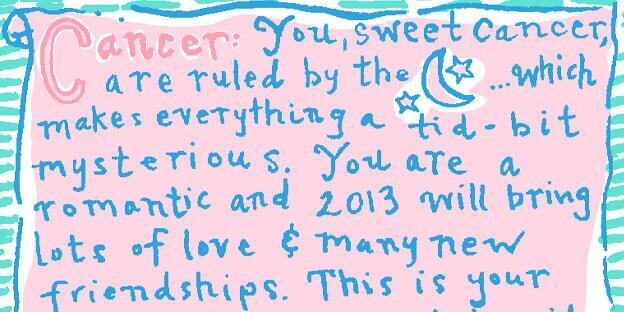 Cancer: You, sweet Cancer,
are ruled by the ...which
makes everything a tid-bit
mysterious. You are a
romantic and 2013 will bring
lots of love & many new
friendships. This is your